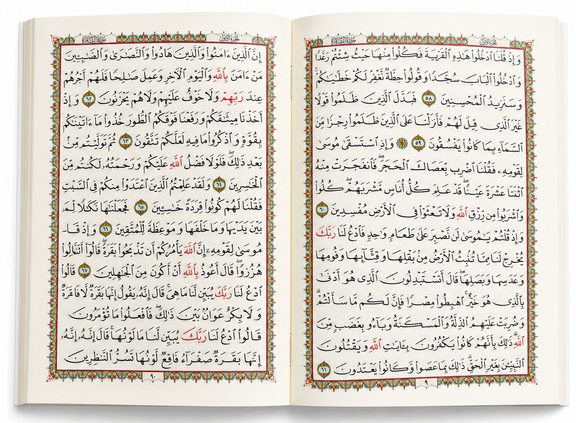 سُورَةُ البَقَرَةِ
الجُزْءُ الأَوَّلُ
وَإِذْ قُلْنَا ٱدْخُلُوا۟ هَٰذِهِ ٱلْقَرْيَةَ فَكُلُوا۟ مِنْهَا حَيْثُ شِئْتُمْ رَغَدًا
وَٱدْخُلُوا۟ ٱلْبَابَ سُجَّدًا وَقُولُوا۟ حِطَّةٌ نَّغْفِرْ لَكُمْ خَطَٰيَٰكُمْ
وَسَنَزِيدُ ٱلْمُحْسِنِينَ ٥٨ فَبَدَّلَ ٱلَّذِينَ ظَلَمُوا۟ قَوْلًا
غَيْرَ ٱلَّذِى قِيلَ لَهُمْ فَأَنزَلْنَا عَلَى ٱلَّذِينَ ظَلَمُوا۟ رِجْزًا مِّنَ
ٱلسَّمَآءِ بِمَا كَانُوا۟ يَفْسُقُونَ ٥٩ وَإِذِ ٱسْتَسْقَىٰ مُوسَىٰ
لِقَوْمِهِۦ فَقُلْنَا ٱضْرِب بِّعَصَاكَ ٱلْحَجَرَ فَٱنفَجَرَتْ مِنْهُ
ٱثْنَتَا عَشْرَةَ عَيْنًا قَدْ عَلِمَ كُلُّ أُنَاسٍ مَّشْرَبَهُمْ كُلُوا۟
وَٱشْرَبُوا۟ مِن رِّزْقِ ٱللَّهِ وَلَا تَعْثَوْا۟ فِى ٱلْأَرْضِ مُفْسِدِينَ ٦٠
وَإِذْ قُلْتُمْ يَٰمُوسَىٰ لَن نَّصْبِرَ عَلَىٰ طَعَامٍ وَٰحِدٍ فَٱدْعُ لَنَا رَبَّكَ
يُخْرِجْ لَنَا مِمَّا تُنۢبِتُ ٱلْأَرْضُ مِنۢ بَقْلِهَا وَقِثَّآئِهَا وَفُومِهَا
وَعَدَسِهَا وَبَصَلِهَا قَالَ أَتَسْتَبْدِلُونَ ٱلَّذِى هُوَ أَدْنَىٰ
بِٱلَّذِى هُوَ خَيْرٌ ٱهْبِطُوا۟ مِصْرًا فَإِنَّ لَكُم مَّا سَأَلْتُمْ
وَضُرِبَتْ عَلَيْهِمُ ٱلذِّلَّةُ وَٱلْمَسْكَنَةُ وَبَآءُو بِغَضَبٍ مِّنَ
ٱللَّهِ ذَٰلِكَ بِأَنَّهُمْ كَانُوا۟ يَكْفُرُونَ بِـَٔايَٰتِ ٱللَّهِ وَيَقْتُلُونَ
ٱلنَّبِيِّـۧنَ بِغَيْرِ ٱلْحَقِّ ذَٰلِكَ بِمَا عَصَوا۟ وَّكَانُوا۟ يَعْتَدُونَ ٦١
٩
الجُزْءُ الأَوَّلُ
سُورَةُ البَقَرَةِ
إِنَّ ٱلَّذِينَ ءَامَنُوا۟ وَٱلَّذِينَ هَادُوا۟ وَٱلنَّصَٰرَىٰ وَٱلصَّٰبِـِٔينَ
مَنْ ءَامَنَ بِٱللَّهِ وَٱلْيَوْمِ ٱلْءَاخِرِ وَعَمِلَ صَٰلِحًا فَلَهُمْ أَجْرُهُمْ
عِندَ رَبِّهِمْ وَلَا خَوْفٌ عَلَيْهِمْ وَلَا هُمْ يَحْزَنُونَ ٦٢ وَإِذْ
أَخَذْنَا مِيثَٰقَكُمْ وَرَفَعْنَا فَوْقَكُمُ ٱلطُّورَ خُذُوا۟ مَآ ءَاتَيْنَٰكُم
بِقُوَّةٍ وَٱذْكُرُوا۟ مَا فِيهِ لَعَلَّكُمْ تَتَّقُونَ ٦٣ ثُمَّ تَوَلَّيْتُم مِّنۢ
بَعْدِ ذَٰلِكَ فَلَوْلَا فَضْلُ ٱللَّهِ عَلَيْكُمْ وَرَحْمَتُهُۥ لَكُنتُم مِّنَ
ٱلْخَٰسِرِينَ ٦٤ وَلَقَدْ عَلِمْتُمُ ٱلَّذِينَ ٱعْتَدَوْا۟ مِنكُمْ فِى ٱلسَّبْتِ
فَقُلْنَا لَهُمْ كُونُوا۟ قِرَدَةً خَٰسِـِٔينَ ٦٥ فَجَعَلْنَٰهَا نَكَٰلًا لِّمَا
بَيْنَ يَدَيْهَا وَمَا خَلْفَهَا وَمَوْعِظَةً لِّلْمُتَّقِينَ ٦٦ وَإِذْ قَالَ
مُوسَىٰ لِقَوْمِهِۦٓ إِنَّ ٱللَّهَ يَأْمُرُكُمْ أَن تَذْبَحُوا۟ بَقَرَةً قَالُوٓا۟ أَتَتَّخِذُنَا
هُزُوًا قَالَ أَعُوذُ بِٱللَّهِ أَنْ أَكُونَ مِنَ ٱلْجَٰهِلِينَ ٦٧ قَالُوا۟
ٱدْعُ لَنَا رَبَّكَ يُبَيِّن لَّنَا مَا هِىَ قَالَ إِنَّهُۥ يَقُولُ إِنَّهَا بَقَرَةٌ لَّا فَارِضٌ
وَلَا بِكْرٌ عَوَانٌۢ بَيْنَ ذَٰلِكَ فَٱفْعَلُوا۟ مَا تُؤْمَرُونَ
قَالُوا۟ ٱدْعُ لَنَا رَبَّكَ يُبَيِّن لَّنَا مَا لَوْنُهَا قَالَ إِنَّهُۥ يَقُولُ
إِنَّهَا بَقَرَةٌ صَفْرَآءُ فَاقِعٌ لَّوْنُهَا تَسُرُّ ٱلنَّٰظِرِينَ
١٠